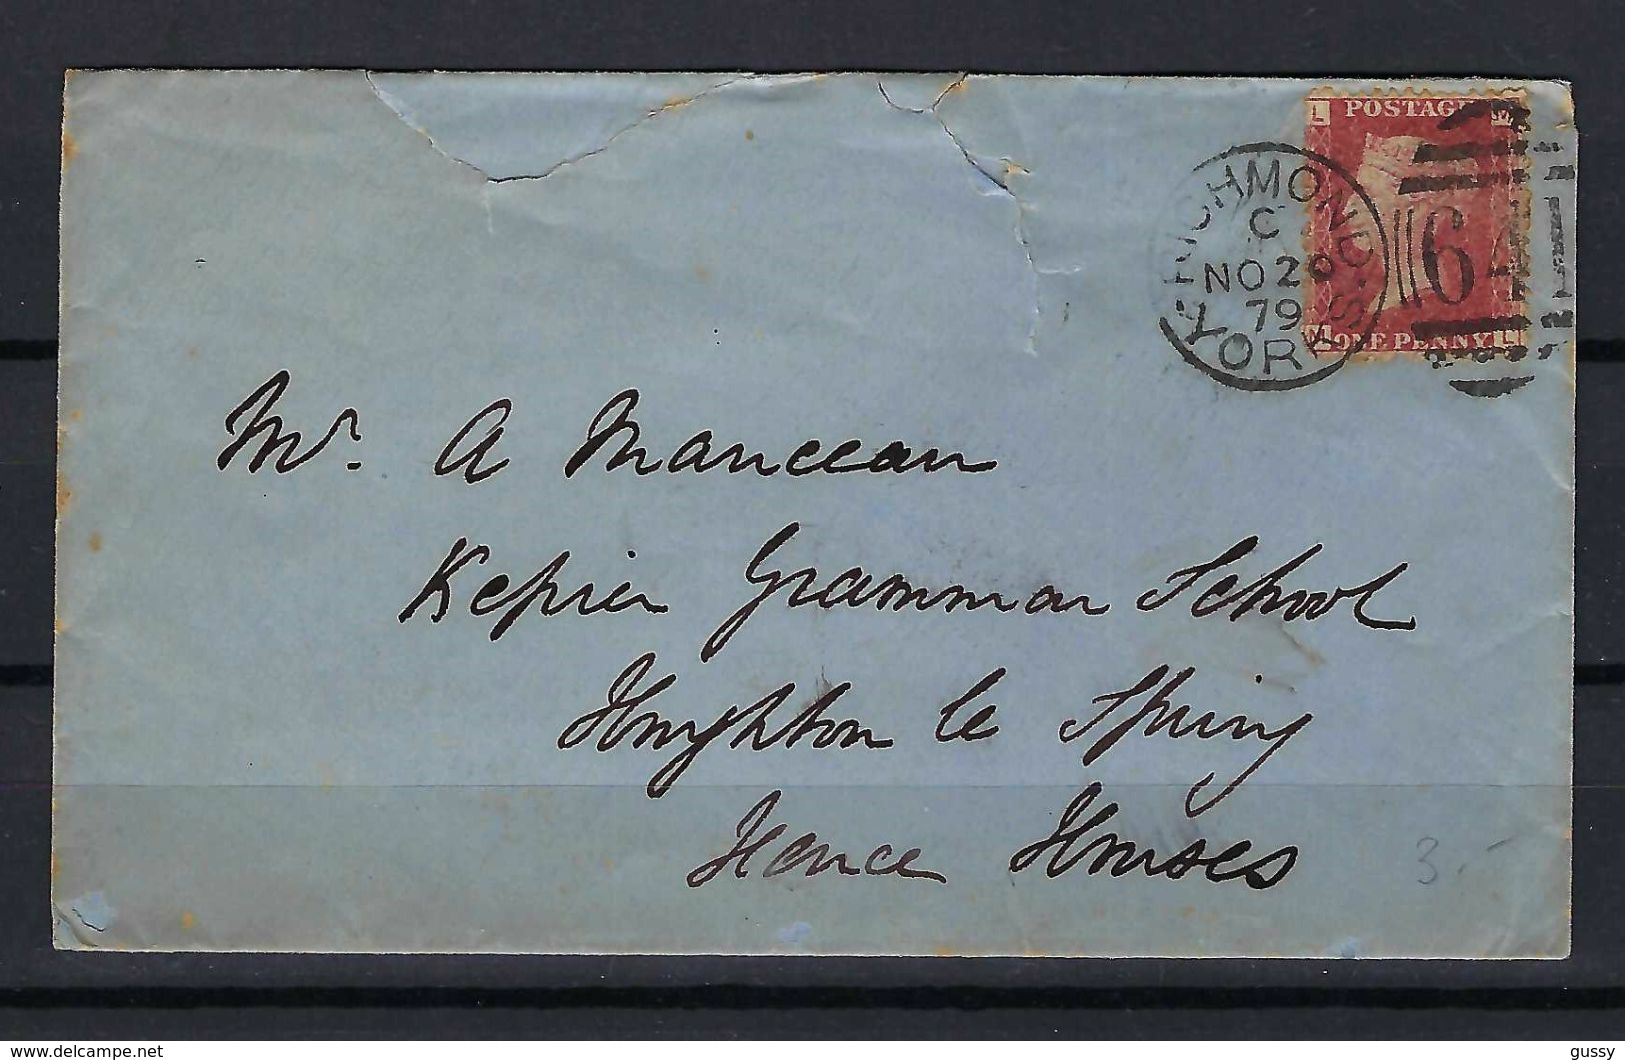 L POSTAGE
RICHMOND
C
NO 20
79
YORKS.
641
ONE PENNY L
Mr. A Manceau
Kepier Grammar School
Houghton le Spring
Fence Houses
3.-
www.delcampe.net
gussy